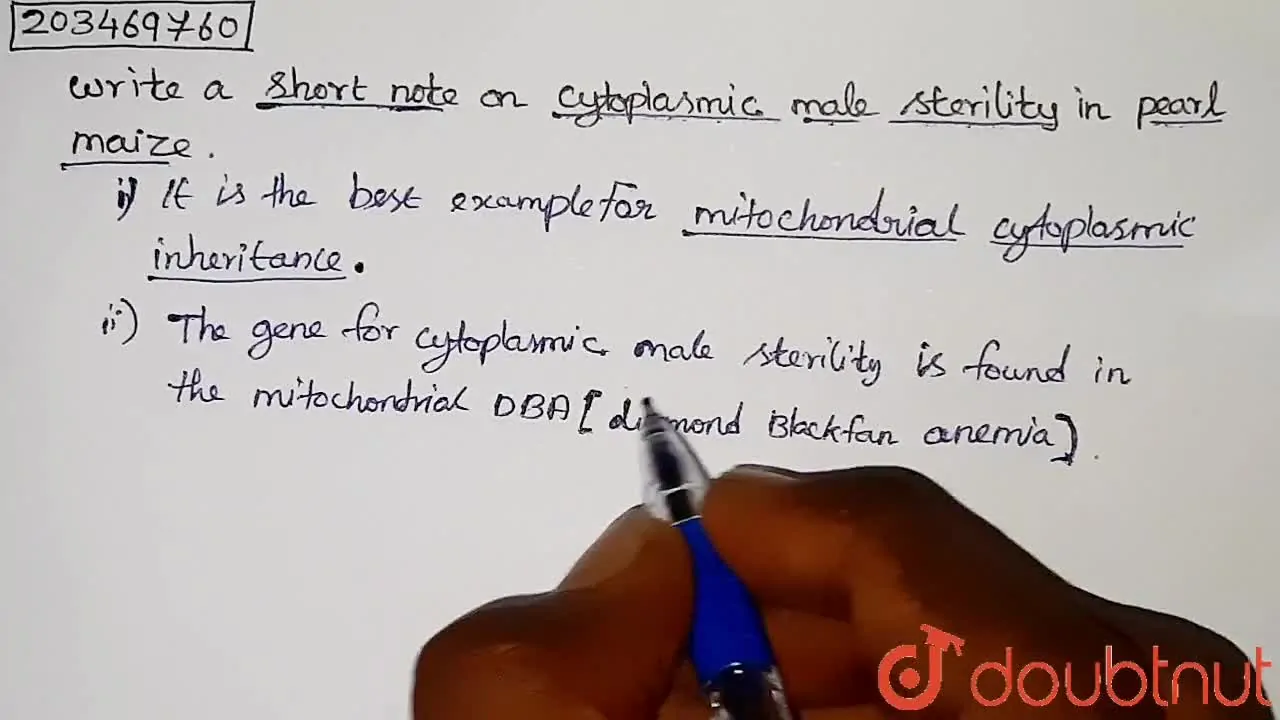 203469760
Write a short note on cytoplasmic male sterility in pearl
maize.
i) It is the best example for mitochondrial cytoplasmic
inheritance.
ii) The gene for cytoplasmic male sterility is found in
the mitochondrial DBA [diamond Blackfan anemia].
doubtnut